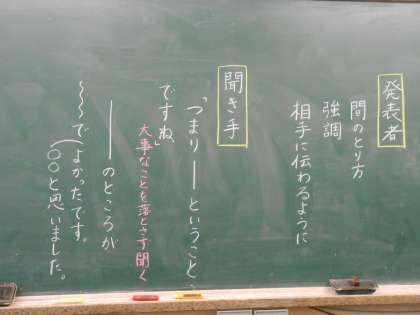 発表者
間のとり方
強調
相手に伝わるように
聞き手
「つまり――ということ
ですね。」
大事なことを落とさず聞く
――のところが
〜〜で(よかったです。
○○と思いました。